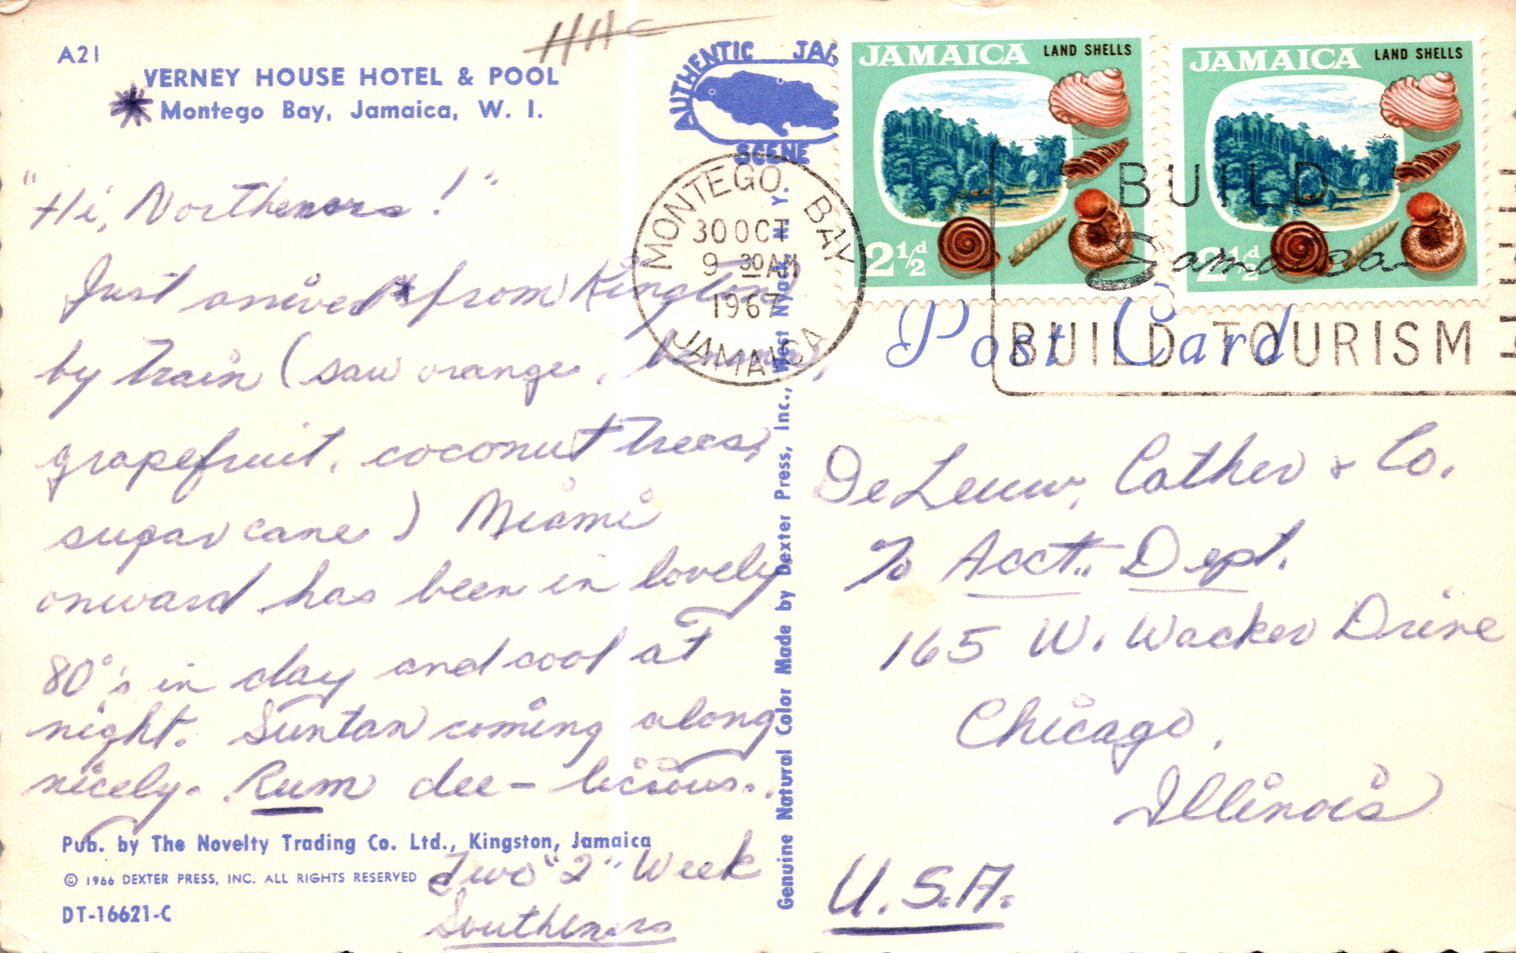 HHC
A21
VERNEY HOUSE HOTEL & POOL
Montego Bay, Jamaica, W. I.
"Hi, Northeners!"
Just arrived * from Kingston
by train (saw orange,
grapefruit, coconut trees,
sugar cane) Miami
onward has been in lovely
80°'s in day and cool at
night. Suntan coming along
nicely. Rum dee-licious.
Two "2" Week
Southeners
Pub. by The Novelty Trading Co. Ltd., Kingston, Jamaica
© 1966 DEXTER PRESS, INC. ALL RIGHTS RESERVED
DT-16621-C
AUTHENTIC JA
SCENE
Genuine Natural Color Made by Dexter Press, Inc., West Nyack, N. Y.
MONTEGO BAY
30 OCT
9 30 AM
1967
JAMAICA
JAMAICA LAND SHELLS
2½d
JAMAICA LAND SHELLS
2½d
BUILD
Jamaica
BUILD TOURISM
Post Card
De Leuw, Cather & Co.
% Acct. Dept.
165 W. Wacker Drive
Chicago,
Illinois
U.S.A.